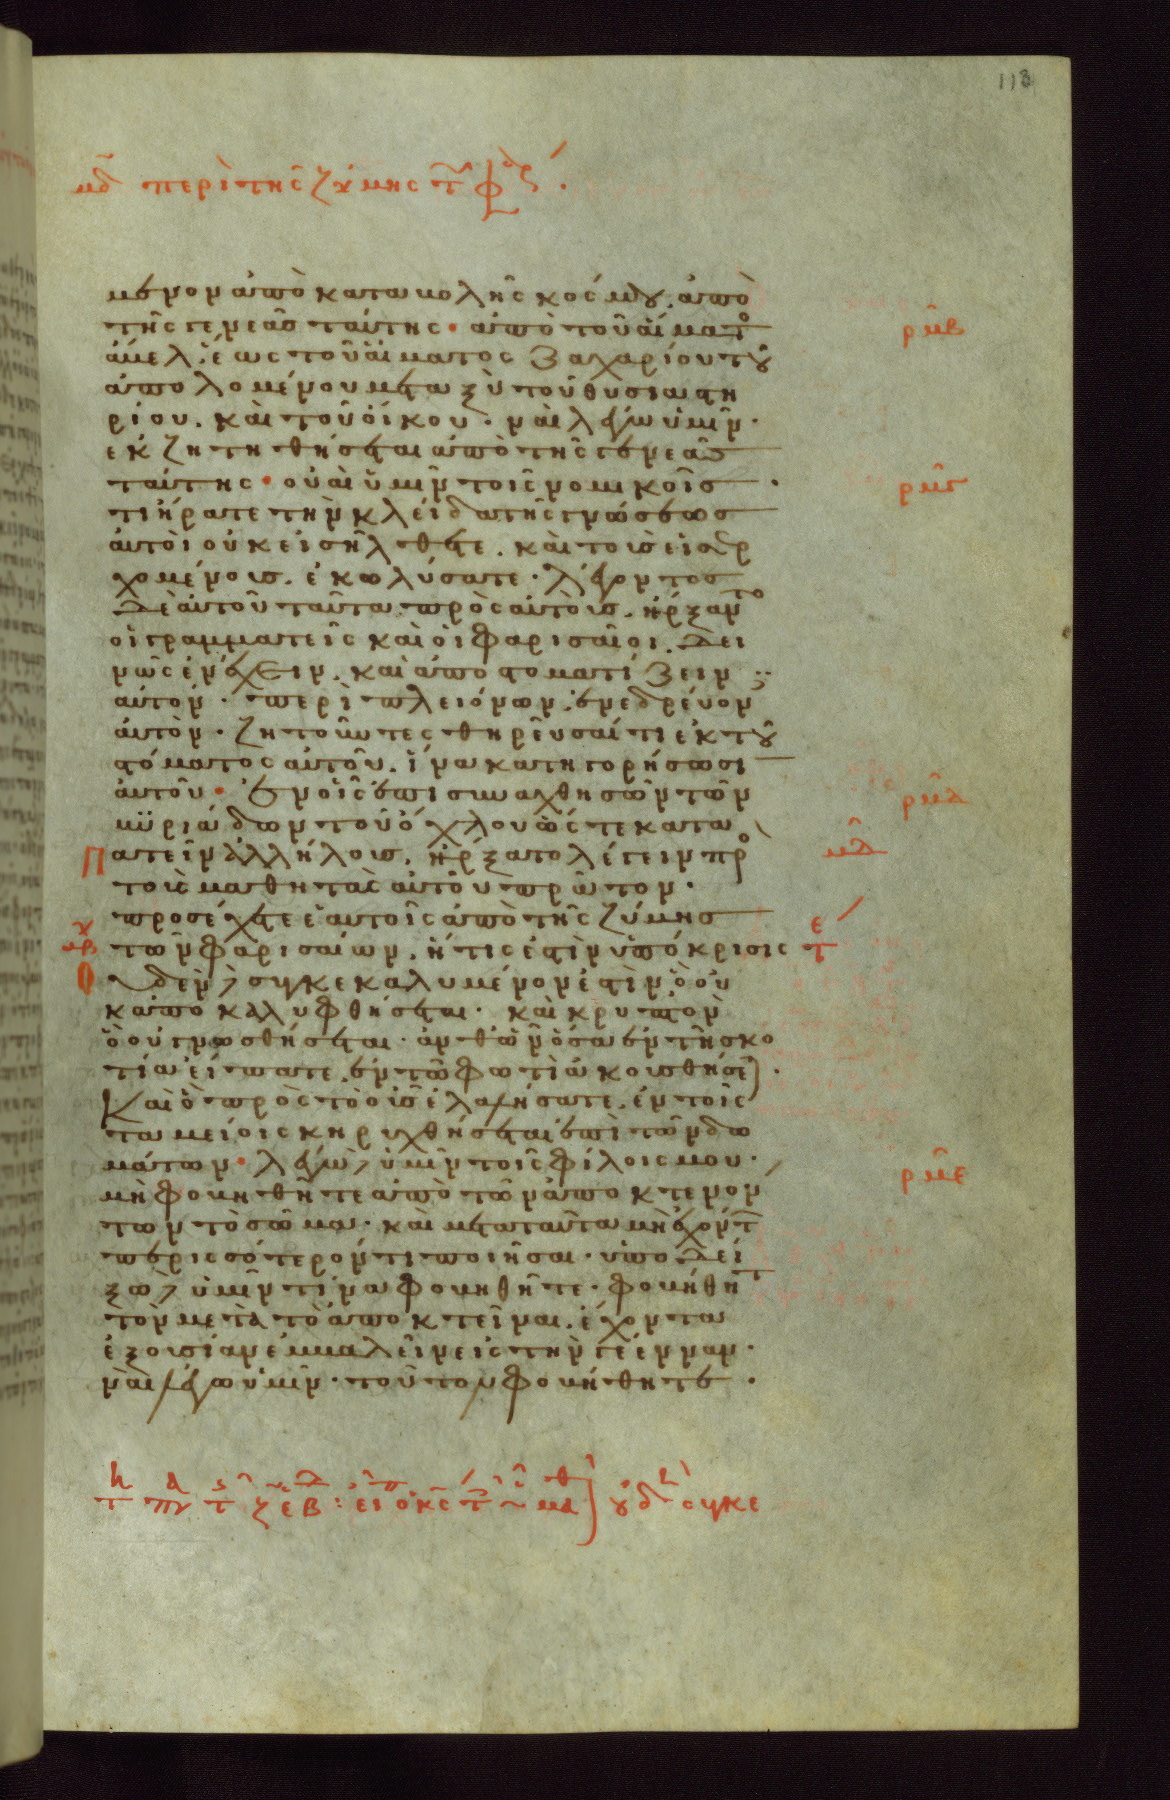 113
μδ περὶ τῆς ζύμης τ Φαρ.
μενον ἀπὸ καταβολῆς κόσμου. ἀπὸ
τῆς γενεᾶς ταύτης· ἀπὸ τοῦ αἵματο
ρμβ
ἅβελ, ἕως τοῦ αἵματος Ζαχαρίου τοῦ
ἀπολομένου μεταξὺ τοῦ θυσιαστη
ρίου. καὶ τοῦ οἴκου. ναὶ λέγω ὑμῖν·
ἐκζητηθήσεται ἀπὸ τῆς γενεᾶς
ταύτης· οὐαὶ ὑμῖν τοῖς νομικοῖς·
ρμγ
τι ἤρατε τὴν κλείδα τῆς γνώσεως
αὐτοὶ οὐκ εἰσήλθετε. καὶ τοὺς εἰσερ
χομένους. ἐκωλύσατε· λέγοντος
δὲ αὐτοῦ ταῦτα πρὸς αὐτοὺς. ἤρξαντο
οἱ γραμματεῖς καὶ οἱ Φαρισαῖοι. δει
νῶς ἐνέχειν. καὶ ἀποστοματίζειν
αὐτόν· περὶ πλειόνων. ἐνεδρεύον
αὐτὸν· ζητοῦντες θηρεῦσαί τι ἐκ τοῦ
στόματος αὐτοῦ. ἵνα κατηγορήσωσι
αὐτοῦ· Ἐν οἷς ἐπισυναχθησῶν τῶν
ρμδ
μυριάδων τοῦ ὄχλου ὥστε κατα
πατεῖν ἀλλήλους. ἤρξατο λέγειν πρὸ
μδ
τοὺς μαθητὰς αὐτοῦ πρῶτον·
προσέχετε ἑαυτοῖς ἀπὸ τῆς ζύμης
τῶν Φαρισαίων. ἥτις ἐστὶν ὑπόκρισις
τε
Οὐδὲν συγκεκαλυμένον ἐστὶν. ὃ οὐ
κ ἀποκαλυφθήσεται. καὶ κρυπτὸν
ὃ οὐ γνωσθήσεται· ἀνθ' ὧν ὅσα ἐν τῆ σκο
τία εἴπατε. ἐν τῶ φωτὶ ἀκουσθήσεται·
Καὶ ὃ πρὸς τὸ οὖς ἐλαλήσατε. ἐν τοῖς
ταμείοις κηρυχθήσεται ἐπὶ τῶν δω
μάτων· λέγω δὲ ὑμῖν τοῖς φίλοις μου·
ρμε
μὴ φοβηθῆτε ἀπὸ τῶν ἀποκτενόν
των τὸ σῶμα· καὶ μετὰ ταῦτα μὴ ἐχόντ
περισσότερόν τι ποιῆσαι· ὑποδεί
ξω δὲ ὑμῖν τίνα φοβηθῆτε· φοβήθητ
τὸν μετὰ τὸ ἀποκτεῖναι. ἔχοντα
ἐξουσίαν ἐμβαλεῖν εἰς τὴν γέενναν·
ναὶ λέγω ὑμῖν· τοῦτον φοβήθητε.
εἶπ ὁ κς τ μαθ οὐδὲν συγκε